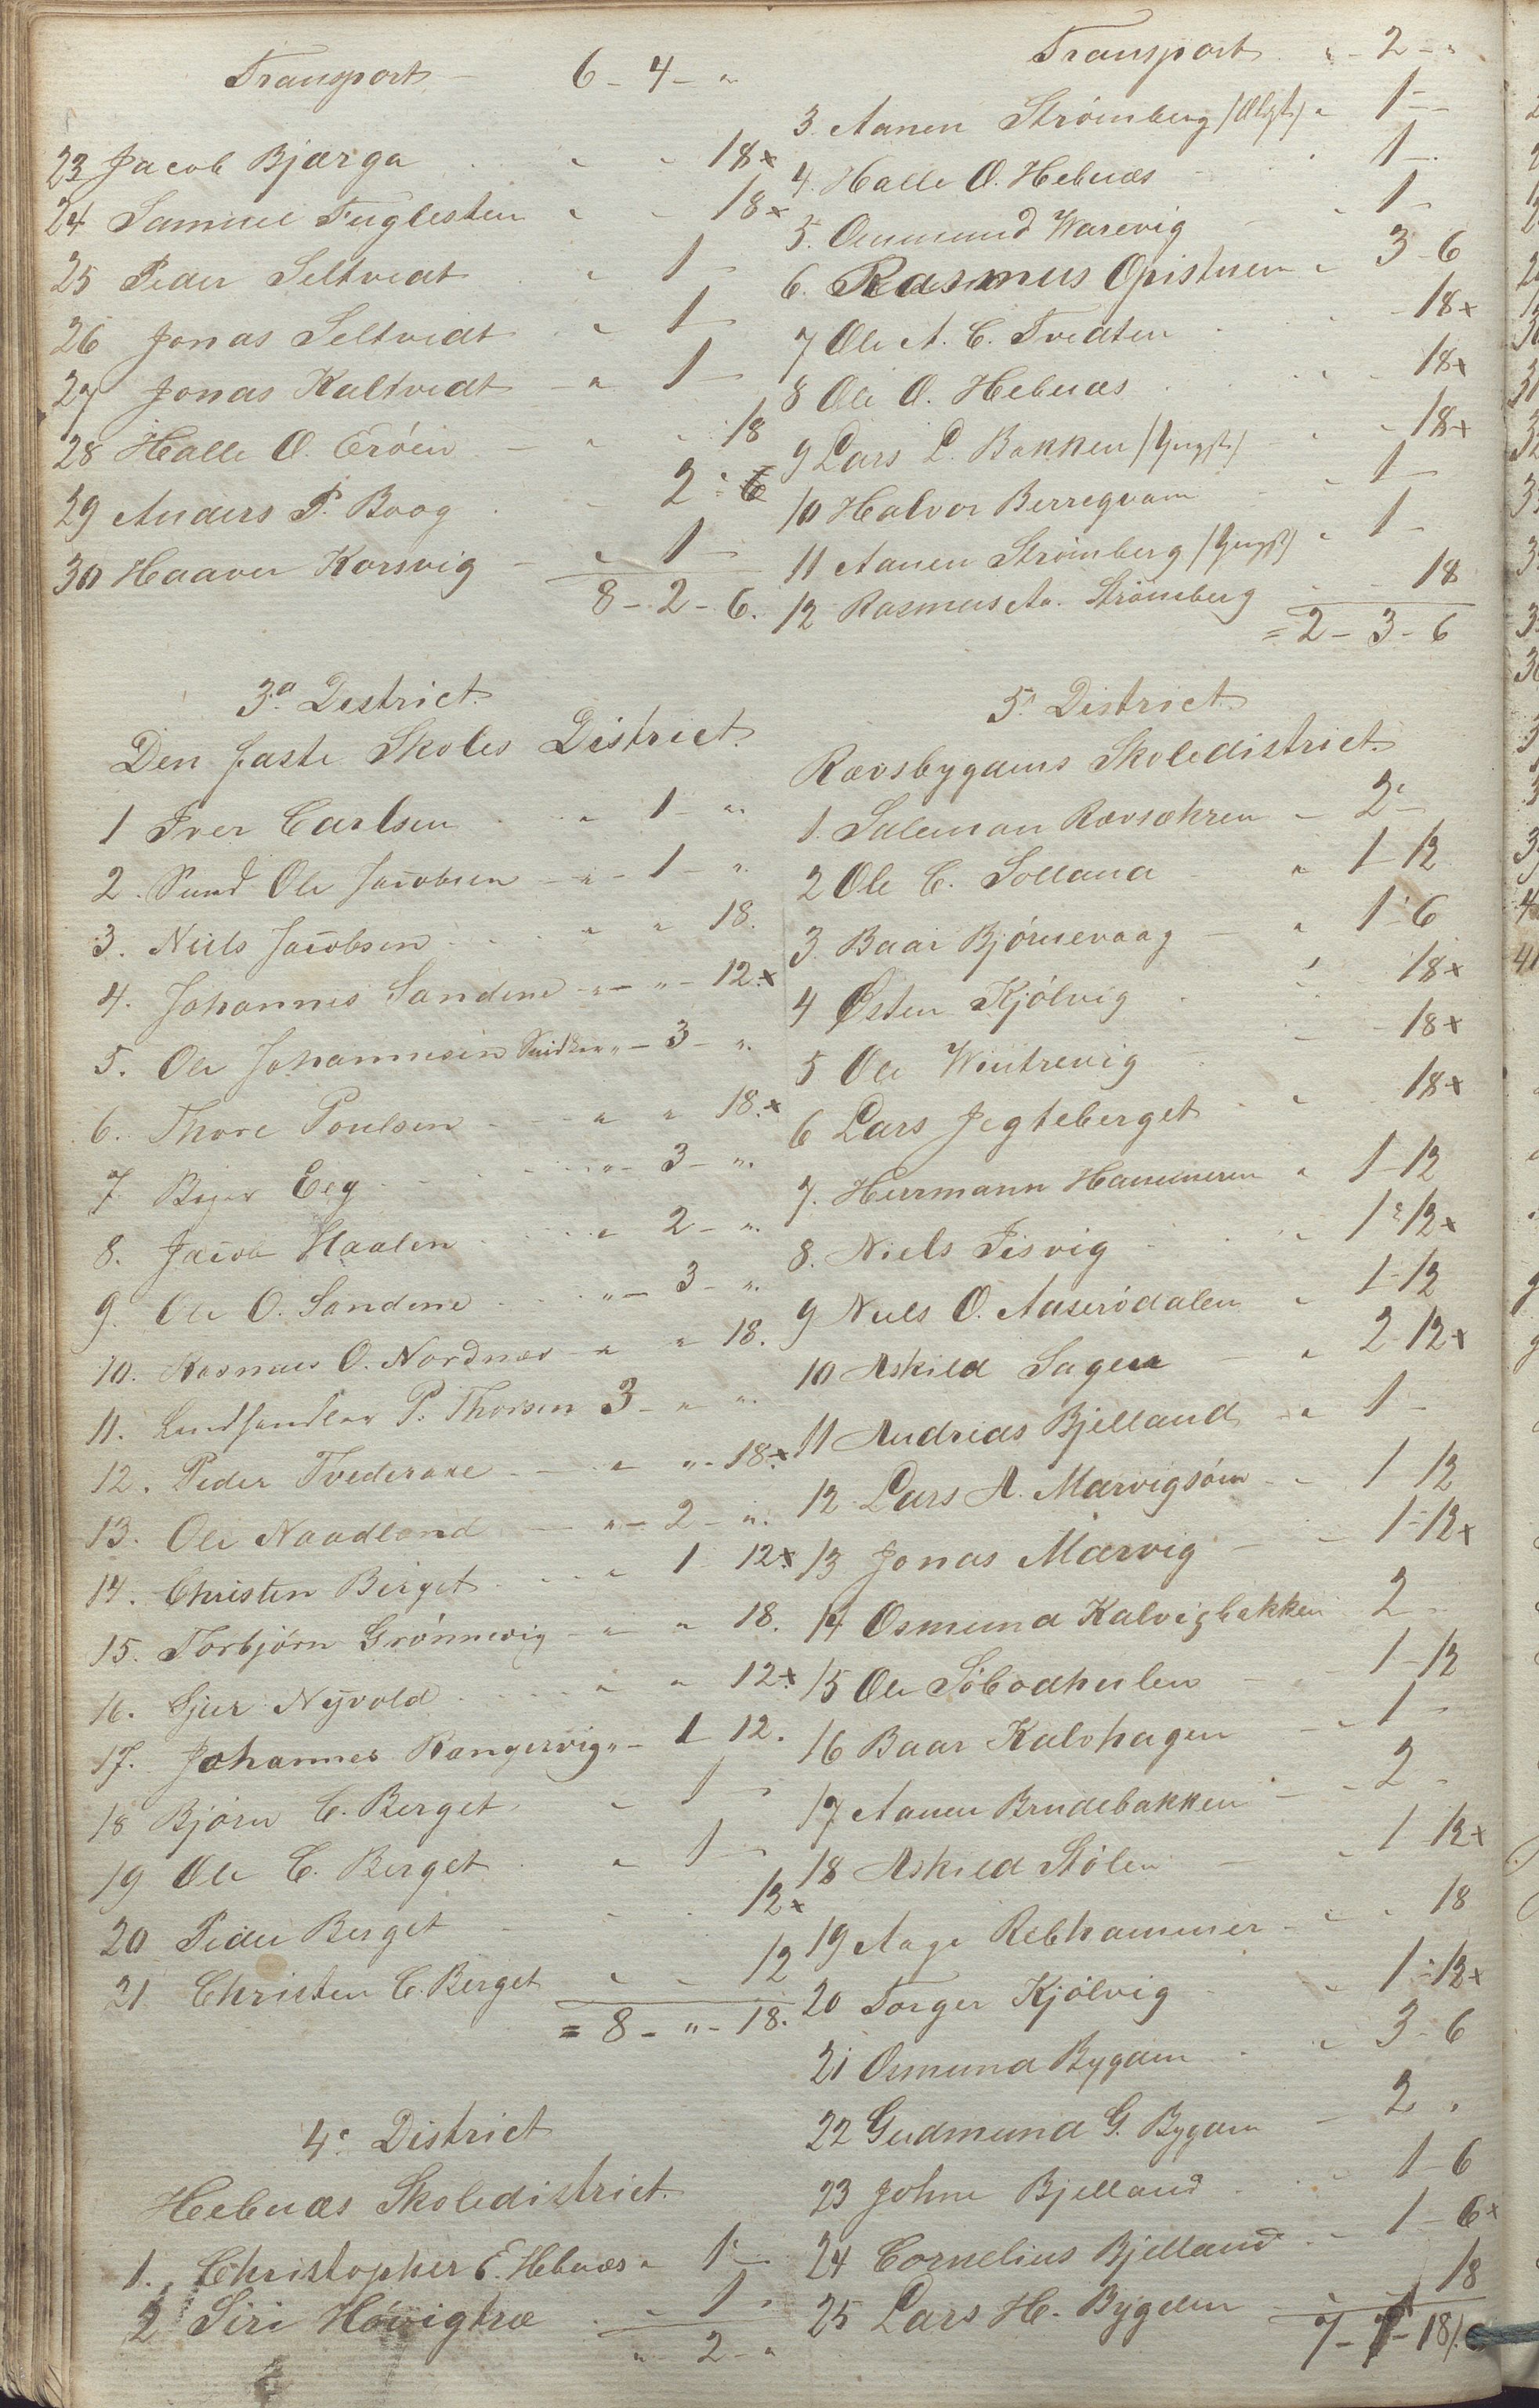 Transport - 6 - 4 - "
23 Jacob Bjærga " " 18 x
24 Samuel Fuglesten " - 18 x
25 Peder Seltvedt " 1 -
26 Jonas Seltvedt " 1 -
27 Jonas Kaltvedt - " 1 -
28 Halle O. Erøen - " " 18
29 Anders P. Boog . - 2 - 6
30 Haaver Korsvig - " 1 -
8 - 2 - 6.
3die District.
Den faste Skoles District.
1 Iver Carlsen " 1 - "
2. Sund Ole Jacobsen - " - 1 - "
3. Niels Jacobsen " " 18.
4. Johannes Sandene - " - " - 12. x
5. Ole Johannesen Snidker " - 3 - ".
6. Thore Poulsen " " 18. x
7 Eeg " - 3 - ".
8. Jacob Haalen " 2 - ".
9. Ole O. Sandene " - 3 - ".
10. Rasmus O. Nordnæs - " " 18.
11. Landhandler P. Thorsen 3 - " "
12. Peder Tvederane - " " - 18. x
13. Ole Naadland - " - 2 - ".
14. Christen Berget " 1 - 12 x
15. Torbjørn Grønnevig - " " 18.
16. Sjur Nyvold " " 12 x
17. Johannes Rangervig " - 1 12.
18 Bjørn C. Berget " 1 -
19 Ole C. Berget " 1 -
20 Peder Berget - - 12 x
21 Christen C. Berget " - 12
= 8 - " - 18.
4de District
Hebnæs Skoledistrict.
1. Christopher E. Hebnæs " 1 -
2 Siri Høvigtræ - 1 -
" - 2 - "
Transport " - 2 - "
3. Aanen Strømberg / " 1 -
4. Halle O. Hebnæs 1 -
5. Onnmund Warevig 1 -
6. Rasmus Opistuen " 3 - 6
7 Ole A. C. Tvedten - 18 x
8 Ole O. Hebnæs - 18 x
9 Lars L. Bakken / - 18 x
10 Halvor Berreqvam - 1 -
11 Aanen Strømberg / " 1 -
12 Rasmus Aa. Strømberg - 18
= 2 - 3 - 6
5te District.
Rævsbygdens Skoledistrict.
1. Salemon Rævsæhren - 2 -
2 Ole C. Solland " 1 - 12
3. Baar Bjørnevaag - " 1 - 6
4 Østen Kjølvig 18 x
5 Ole Wintrevig - 18 x
6 Lars Jegteberget " 18 x
7. Herrmann Hammeren " 1 - 12
8. Niels Jisvig " 1 - 12 x
9 Niels O. Aaserødalen " 1 - 12
10 Askild Sagen " 2 12 x
11 Andreas Bjelland " 1 -
12 Lars A. Marvigsøen - 1 12
13 Jonas Marvig - - 1 - 12 x
14 Osmund Kalvigbakken 2 -
15 Ole - 1 - 12
16 Baar Kalvhagen - " 1 -
17 Aanen Brudebakken - - 2 -
18 Askild Stølen - " 1 12 x
19 Aage Rebhammer - " " 18
20 Torger Kjølvig " 1 - 12 x
21 Osmund Bygden " 3 - 6
22 Gudmund G. Bygden - 2 .
23 Johne Bjelland - 1 - 6
24 Cornelius Bjelland - 1 - 6 x
25 Lars H. Bygden " - 18
7 - 1 - 18